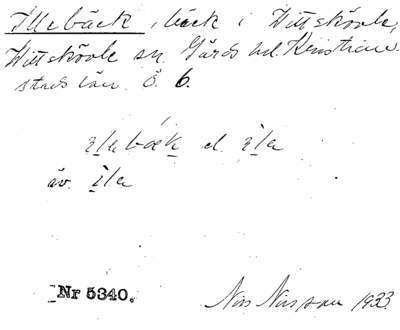 Illebäck, bäck i Vittskövle,
Vittskövle sn. Gärds hd. Kristian-
stads län. Ö. 6.
ɩlabæk el. ɩla
äv. ila
Nr 5340.
Nils Nilsson 1933